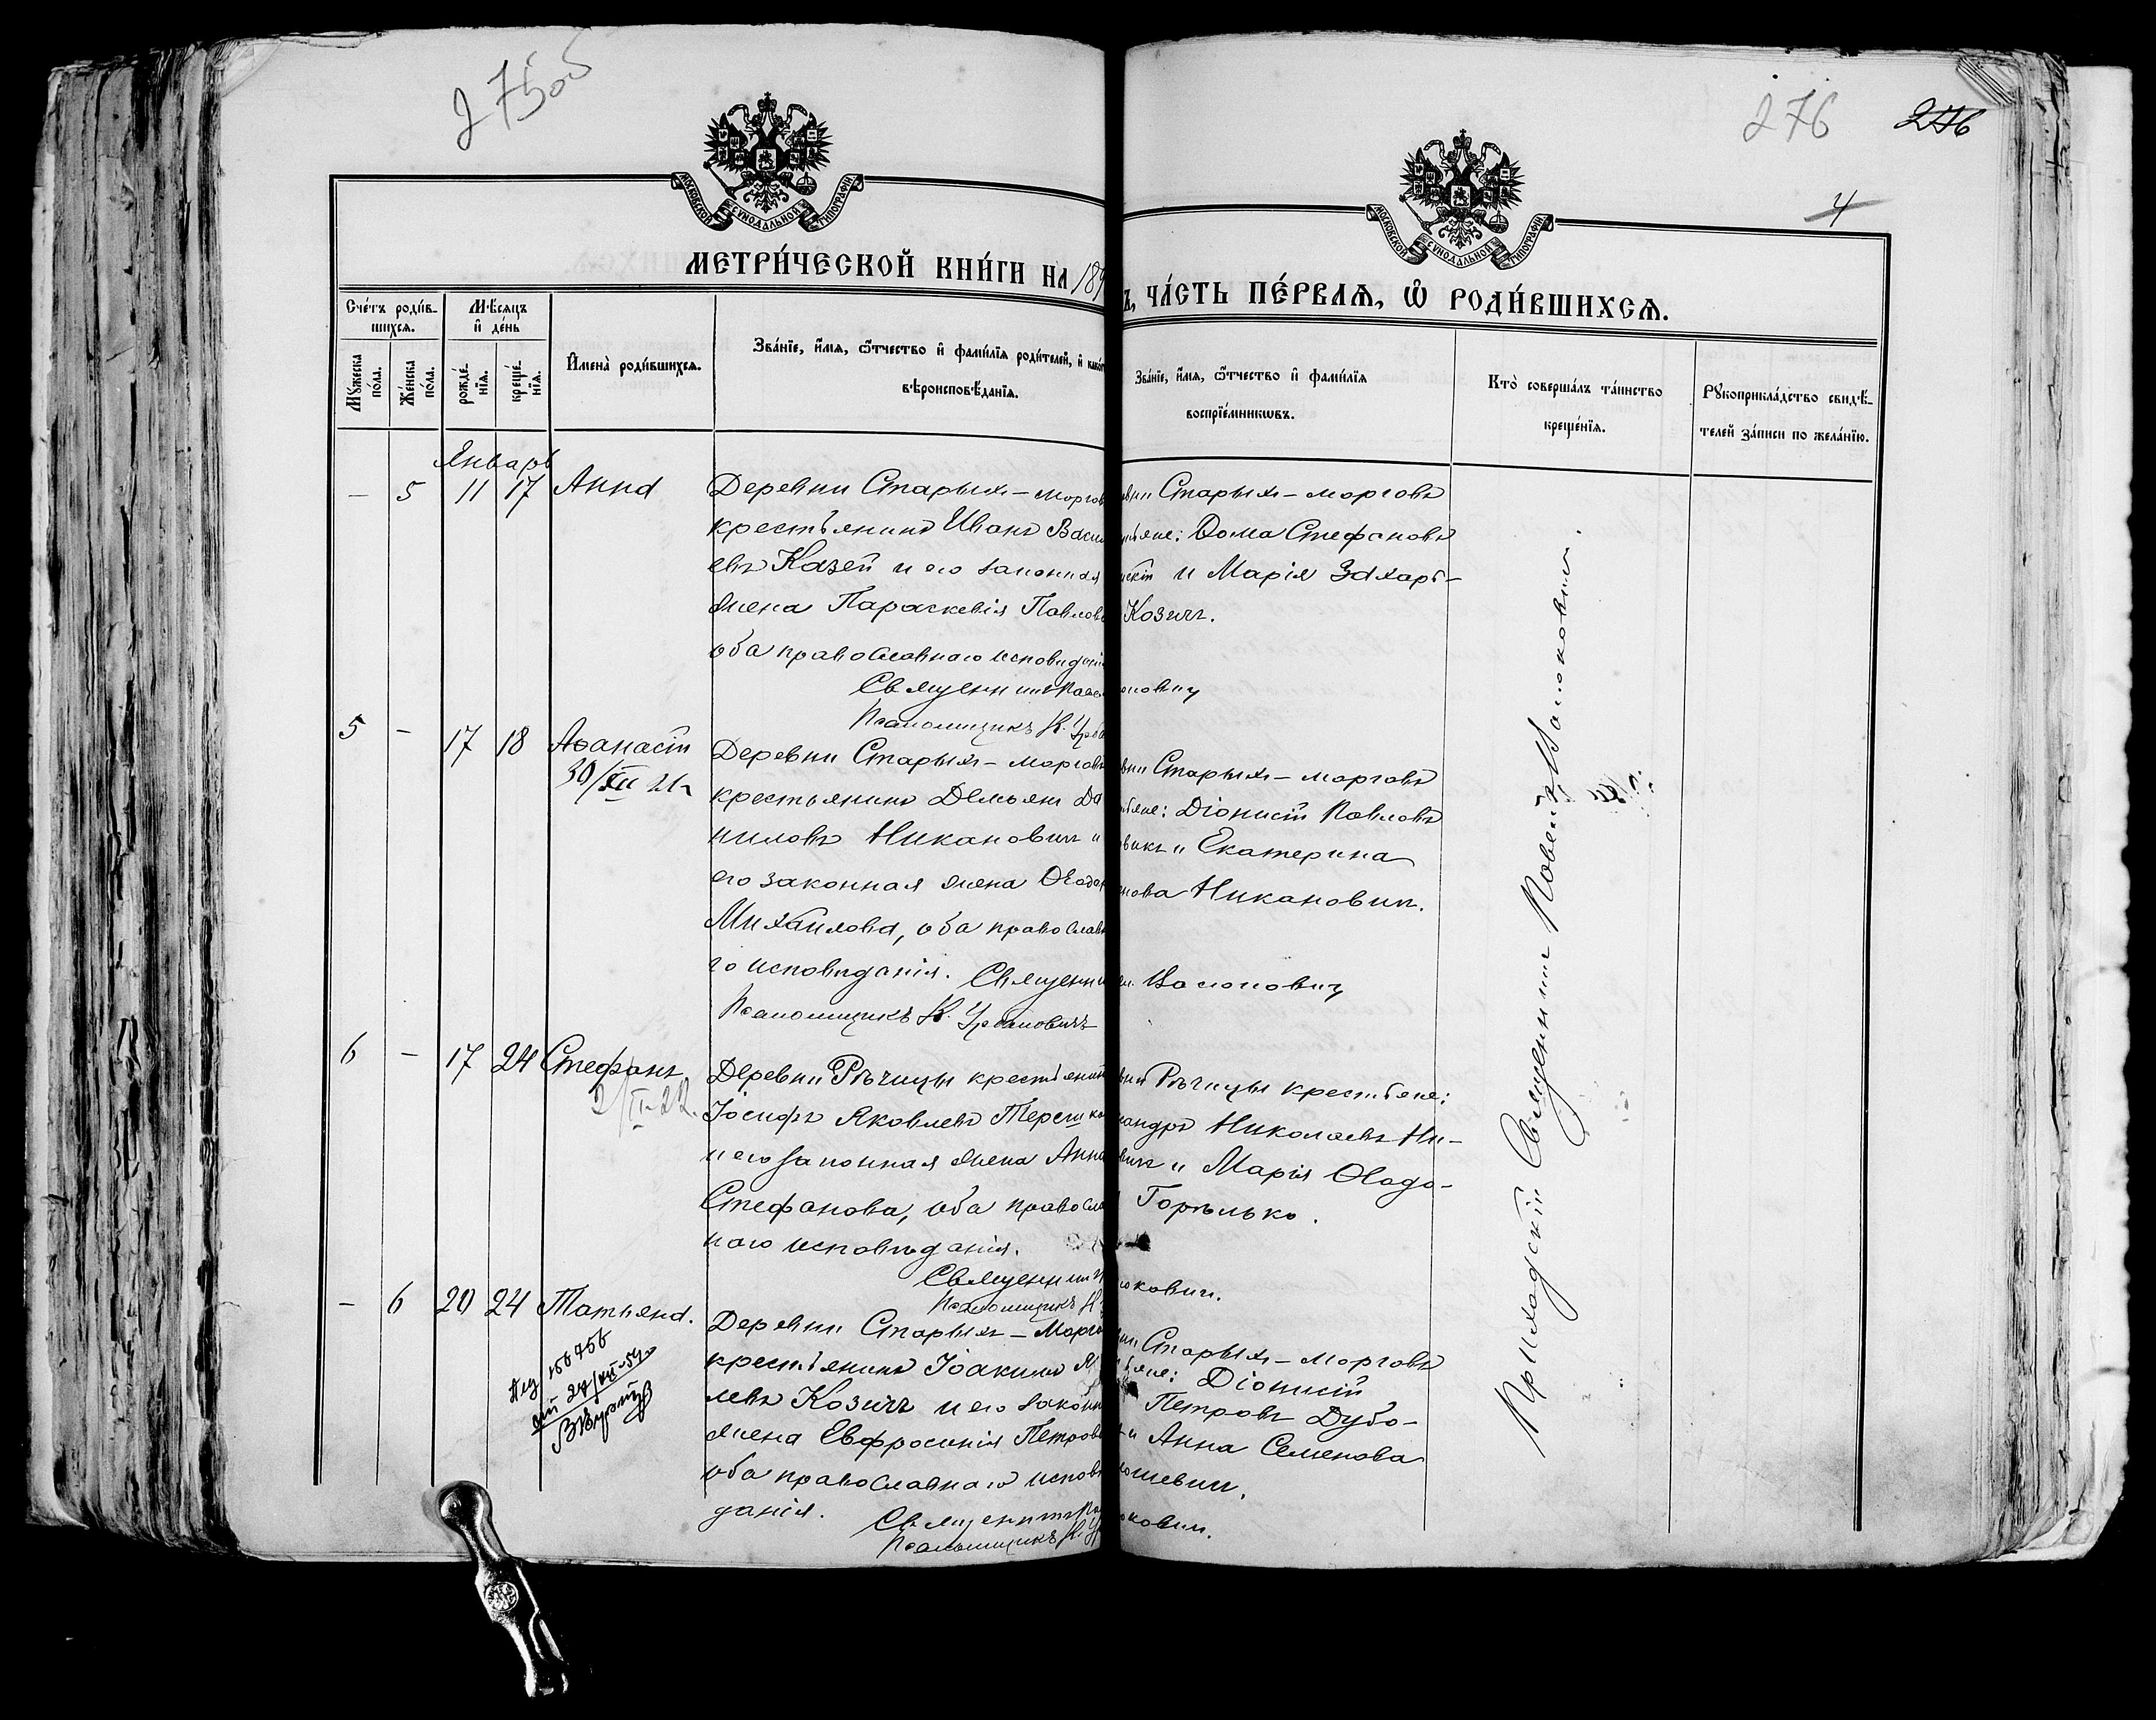 275об
276
276
4
МОСКОВСКОЙ СѴНОДАЛЬНОЙ ТИПОГРАФІИ
МОСКОВСКОЙ СѴНОДАЛЬНОЙ ТИПОГРАФІИ
МЕТРИ́ЧЕСКОЙ КНИ́ГИ НА 189
Ъ, ЧА́СТЬ ПЕ́РВАѦ, Ѽ РОДИ́ВШИХСѦ.
Сче́тъ роди́в-
шихсѧ.
Мꙋ́жеска по́ла.
Же́нска по́ла.
Мѣ́сѧцъ
и҆ де́нь
рожде́-
нїѧ.
креще́-
нїѧ.
И҆мена̀ роди́вшихсѧ.
Зва́нїе, и҆́мѧ, ѻ҆́тчество и҆ фами́лїѧ роди́телей, и҆ како́г
вѣроисповѣ́данїѧ.
Зва́нїе, и҆́мѧ, ѻ҆́тчество и҆ фами́лїѧ
воспрїе́мникѡвъ.
Кто̀ соверша́лъ та́инство
креще́нїѧ.
Рꙋкоприкла́дство свидѣ́-
телей за́писи по жела́нїю.
Январь
— 5 11 17 Анна
Деревни Старыхъ-морговъ
крестьянинъ Иванъ Васил
евъ Казей и его законная
жена Параскевія Павлов
оба православнаго исповѣдані
Священникъ
Псаломщикъ К. Урба
вни Старыхъ-морговъ
тьяне: Ѳома Стефановъ
и Марія Захарь-
Козичъ.
5 — 17 18 Аѳанасій
30/XII 21г
Деревни Старыхъ-морговъ
крестьянинъ Демьянъ Да
ниловъ Никановичъ и
его законная жена Ѳеодор
Михайлова, оба православ
го исповѣданія. Священни
Псаломщикъ К. Урбановичъ
вни Старыхъ-морговъ
тьяне: Діонисій Павловъ
викъ и Екатерина
нова Никановичъ.
6 — 17 24 Стефанъ
Деревни Рѣчицы крестьянин
Іосифъ Яковлевъ Терешко
и его законная жена Анна
Стефанова, оба православ
наго исповѣданія.
Священникъ
Псаломщикъ К.
вни Рѣчицы крестьяне:
сандръ Николаевъ Ни-
вичъ и Марія Ѳеодо-
Горѣлько.
— 6 20 24 Татьяна.
Деревни Старыхъ-Морго
крестьянинъ Іоакимъ
левъ Козичъ и его закон
жена Евфросинія Петров
оба православнаго исповѣ
данія.
Священникъ
Псаломщикъ К. У
вни Старыхъ-морговъ
тьяне: Діонисій
Петровъ Дубо-
и Анна Семенова
юшевичъ.
Приходскій Священникъ